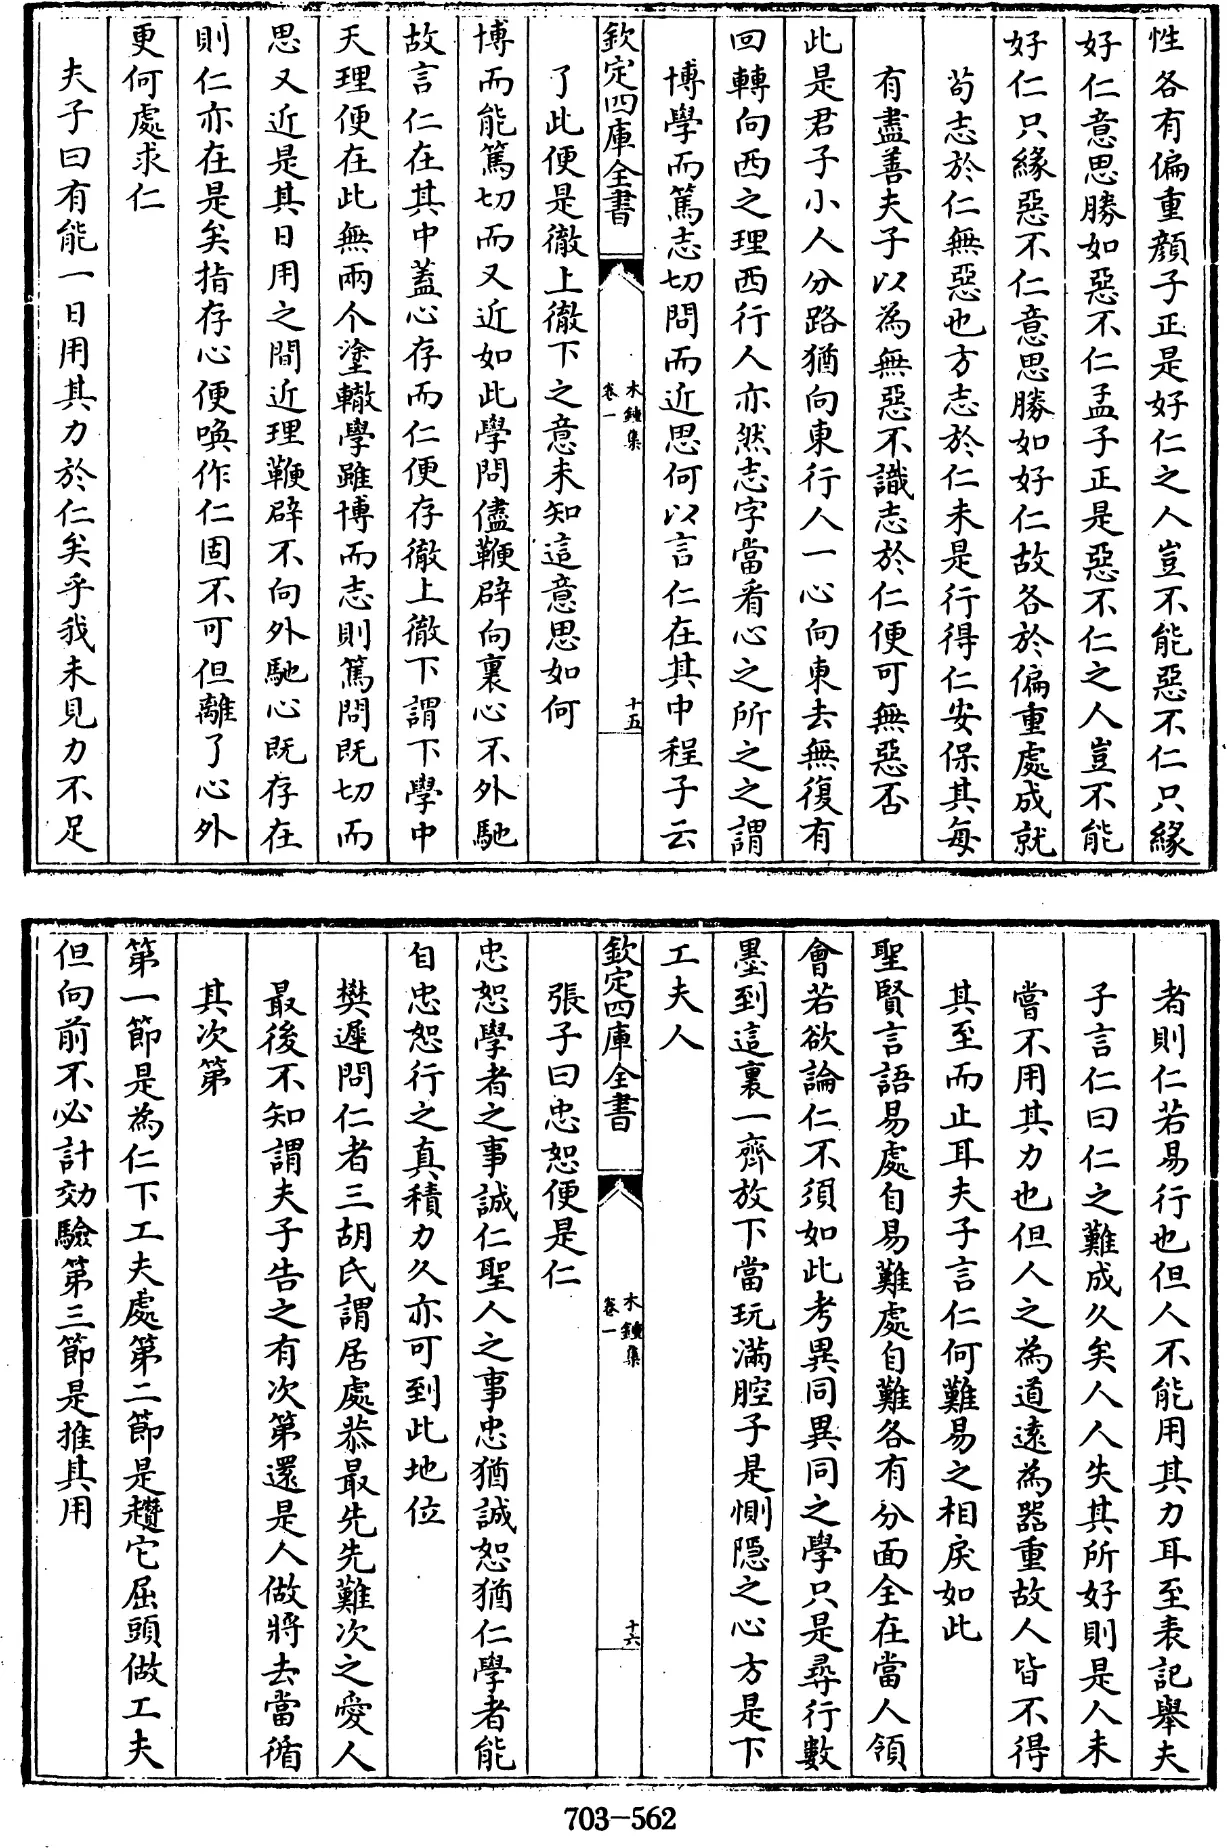 性各有偏重顔子正是好仁之人豈不能惡不仁只緣
好仁意思勝如惡不仁孟子正是惡不仁之人豈不能
好仁只緣惡不仁意思勝如好仁故各於偏重處成就
苟志於仁無惡也方志於仁未是行得仁安保其每
有盡善夫子以為無惡不識志於仁便可無惡否
此是君子小人分路猶向東行人一心向東去無復有
回轉向西之理西行人亦然志字當看心之所之之謂
博學而篤志切問而近思何以言仁在其中程子云
欽定四庫全書
木鐘集
卷一
十五
了此便是徹上徹下之意未知這意思如何
博而能篤切而又近如此學問儘鞭辟向裏心不外馳
故言仁在其中蓋心存而仁便存徹上徹下謂下學中
天理便在此無兩个塗轍學雖博而志則篤問既切而
思又近是其日用之間近理鞭辟不向外馳心既存在
則仁亦在是矣指存心便喚作仁固不可但離了心外
更何處求仁
夫子曰有能一日用其力於仁矣乎我未見力不足
者則仁若易行也但人不能用其力耳至表記舉夫
子言仁曰仁之難成久矣人人失其所好則是人未
嘗不用其力也但人之為道遠為器重故人皆不得
其至而止耳夫子言仁何難易之相戾如此
聖賢言語易處自易難處自難各有分面全在當人領
會若欲論仁不須如此考異同異同之學只是尋行數
墨到這裏一齊放下當玩滿腔子是惻隠之心方是下
工夫人
欽定四庫全書
木鐘集
卷一
十六
張子曰忠恕便是仁
忠恕學者之事誠仁聖人之事忠猶誠恕猶仁學者能
自忠恕行之真積力久亦可到此地位
樊遲問仁者三胡氏謂居處恭最先先難次之愛人
最後不知謂夫子告之有次第還是人做將去當循
其次第
第一節是為仁下工夫處第二節是趲它屈頭做工夫
但向前不必計効驗第三節是推其用
703-562